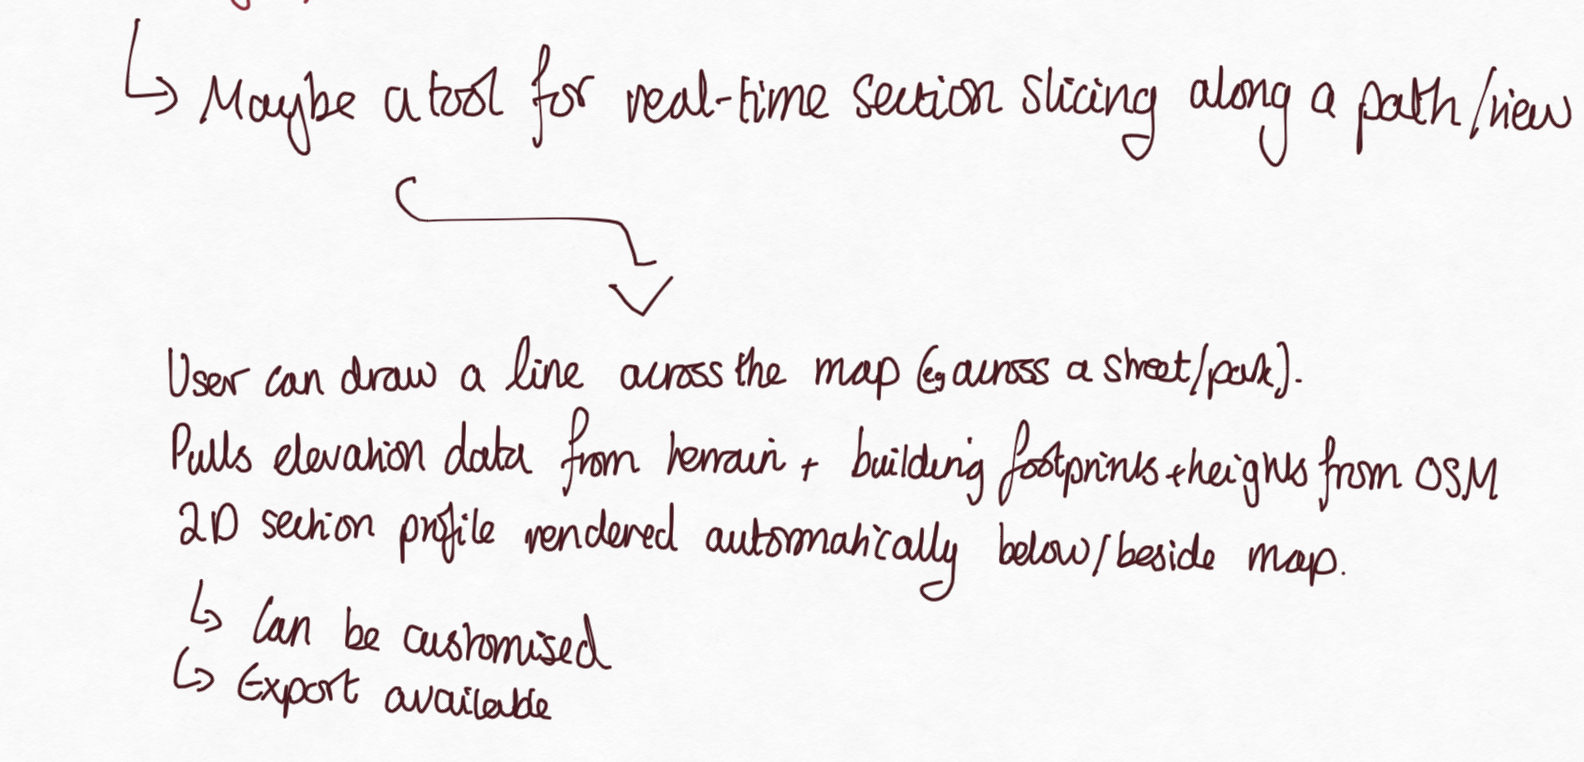 ↳ Maybe a tool for real-time section slicing along a path/view
User can draw a line across the map (eg across a street/park).
Pulls elevation data from terrain + building footprints + heights from OSM
2D section profile rendered automatically below/beside map.
↳ Can be customised
↳ Export available